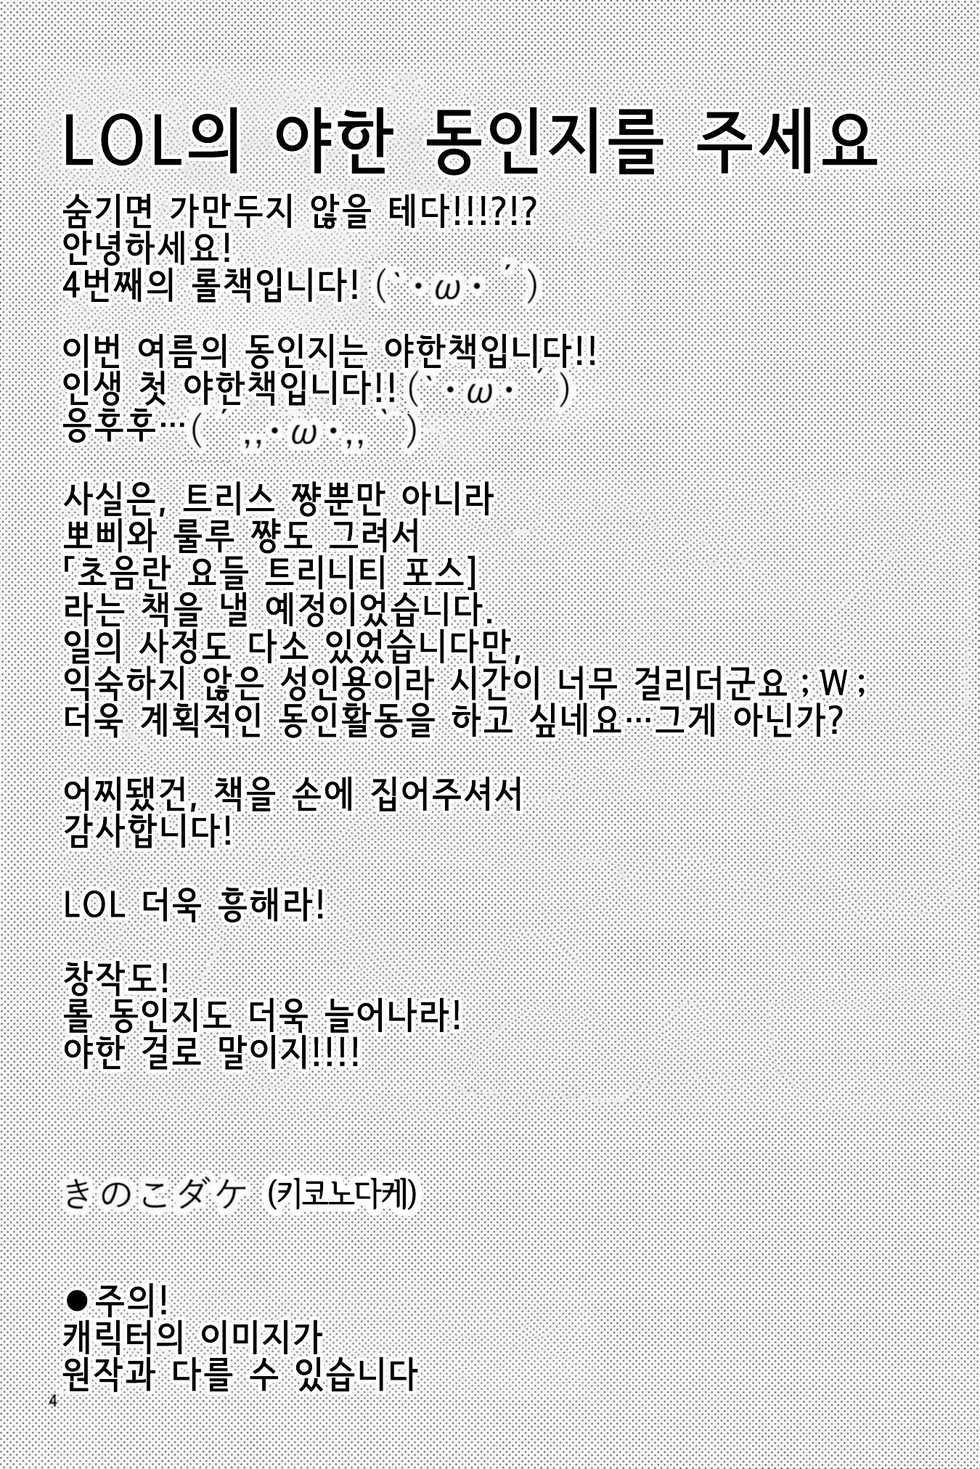 LOL의 야한 동인지를 주세요
숨기면 가만두지 않을 테다!!!?!?
안녕하세요!
4번째의 롤책입니다! (`・ω・´)
이번 여름의 동인지는 야한책입니다!!
인생 첫 야한책입니다!! (`・ω・´)
응후후…(´,,・ω・,,`)
사실은, 트리스 쨩뿐만 아니라
뽀삐와 룰루 쨩도 그려서
「초음란 요들 트리니티 포스]
라는 책을 낼 예정이었습니다.
일의 사정도 다소 있었습니다만,
익숙하지 않은 성인용이라 시간이 너무 걸리더군요 ; W ;
더욱 계획적인 동인활동을 하고 싶네요…그게 아닌가?
어찌됐건, 책을 손에 집어주셔서
감사합니다!
LOL 더욱 흥해라!
창작도!
롤 동인지도 더욱 늘어나라!
야한 걸로 말이지!!!!
きのこダケ (키코노다케)
●주의!
캐릭터의 이미지가
원작과 다를 수 있습니다
4